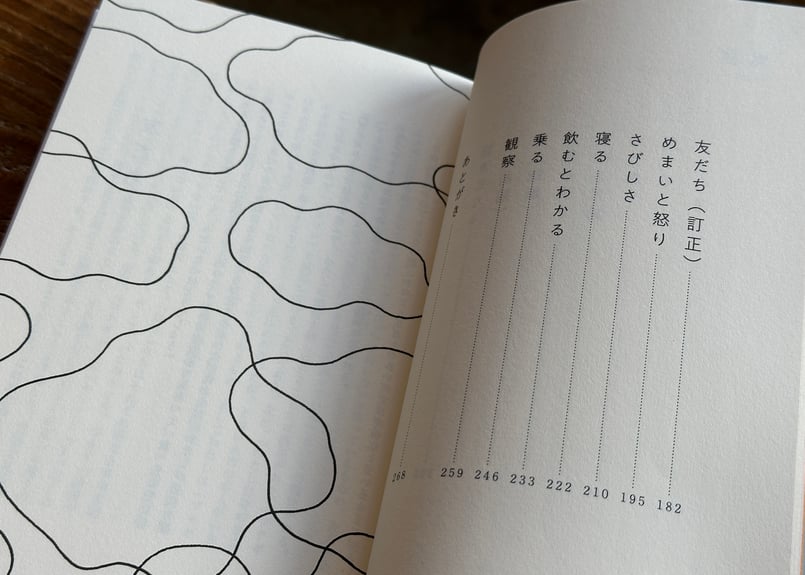 友だち（訂正）182
めまいと怒り 195
さびしさ 210
寝る 222
飲むとわかる 233
乗る 246
観察 259
あとがき 268